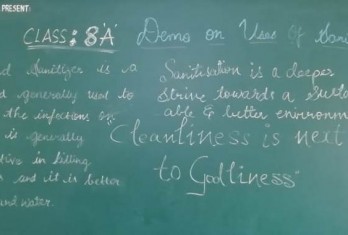 PRESENT:
CLASS: 8'A' Demo on Uses of
Sanitizer is a
generally used to
the infections on
is generally
in killing
and it is better
water.
Sanitisation is a deeper
strive towards a
able & better environm
Cleanliness is next
to Godliness"